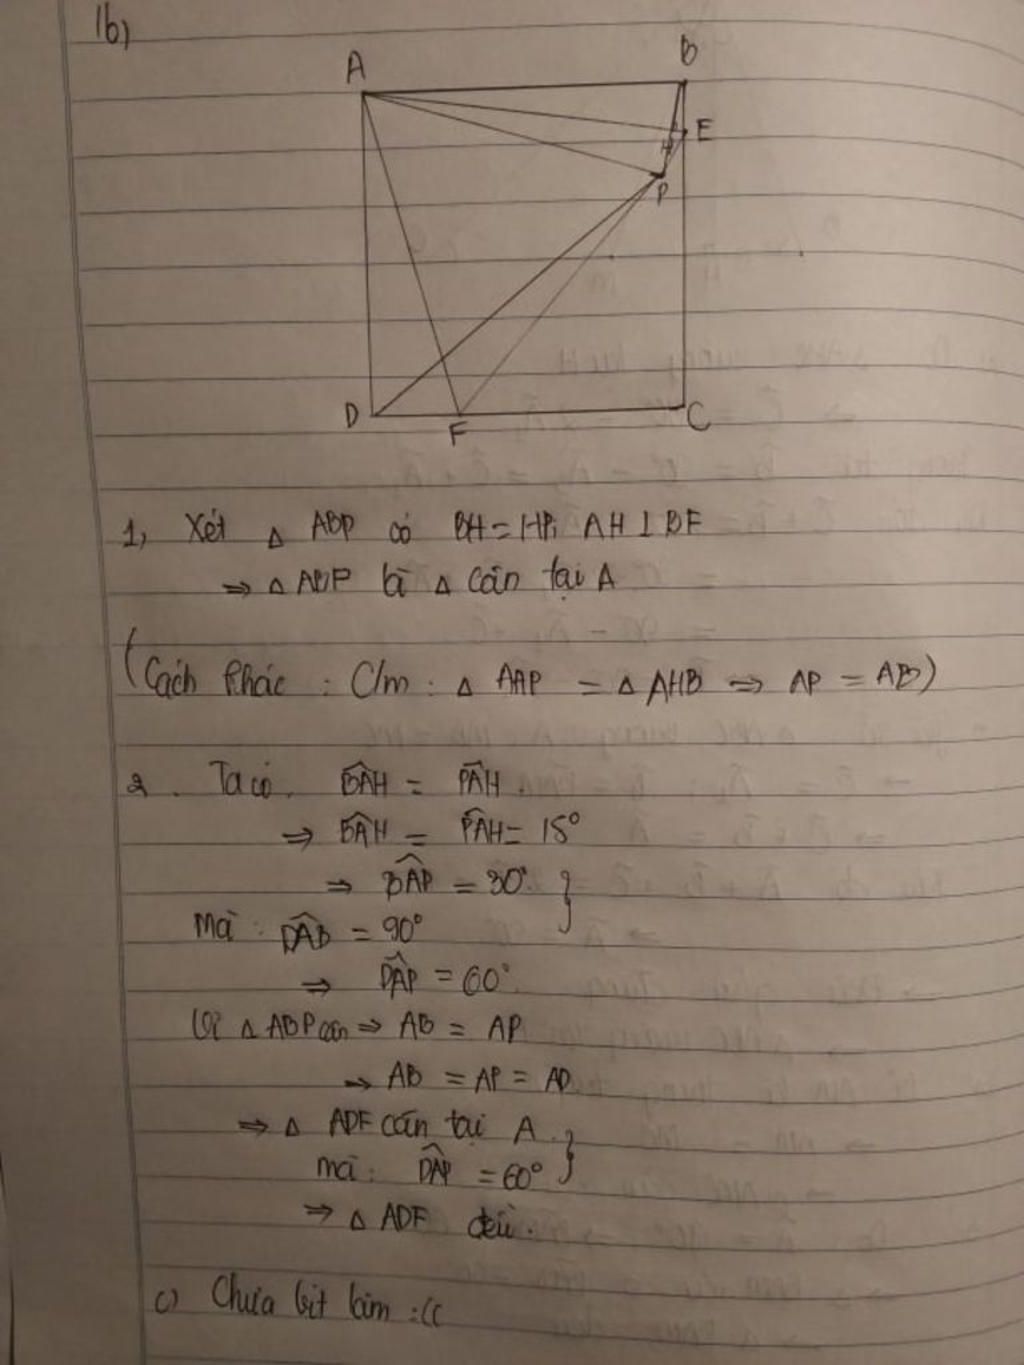 1b)
A
B
E
H
P
D
F
C
1, Xét △ ABP có BH = HP; AH ⊥ BF
⇒ △ ABP là △ cân tại A
(Cách khác : C/m : △ AAP = △ AHB ⇒ AP = AB)
2. Ta có. BAH = PAH
⇒ BAH = PAH = 15°
⇒ BAP = 30° }
Mà : DAB = 90°
⇒ DAP = 60°.
Vì △ ABP cân ⇒ AB = AP
⇒ AB = AP = AD
⇒ △ ADF cân tại A. }
mà : DAP = 60°
⇒ △ ADF đều.
c) Chưa bít làm :((